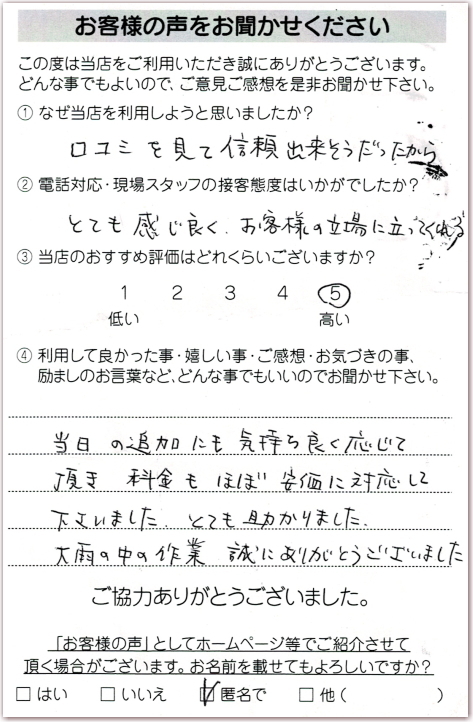 お客様の声をお聞かせください
この度は当店をご利用いただき誠にありがとうございます。
どんな事でもよいので、ご意見ご感想を是非お聞かせ下さい。
① なぜ当店を利用しようと思いましたか？
口コミを見て信頼出来そうだったから
② 電話対応・現場スタッフの接客態度はいかがでしたか？
とても感じ良く、お客様の立場に立ってくれる
③ 当店のおすすめ評価はどれくらいございますか？
1 2 3 4 5
低い 高い
④ 利用して良かった事・嬉しい事・ご感想・お気づきの事、
励ましのお言葉など、どんな事でもいいのでお聞かせ下さい。
当日の追加にも気持ち良く応じて
頂き 料金もほぼ安価に対応して
下さいました。とても助かりました。
大雨の中の作業 誠にありがとうございました
ご協力ありがとうございました。
「お客様の声」としてホームページ等でご紹介させて
頂く場合がございます。お名前を載せてもよろしいですか？
□ はい □ いいえ ☑ 匿名で □ 他（ ）